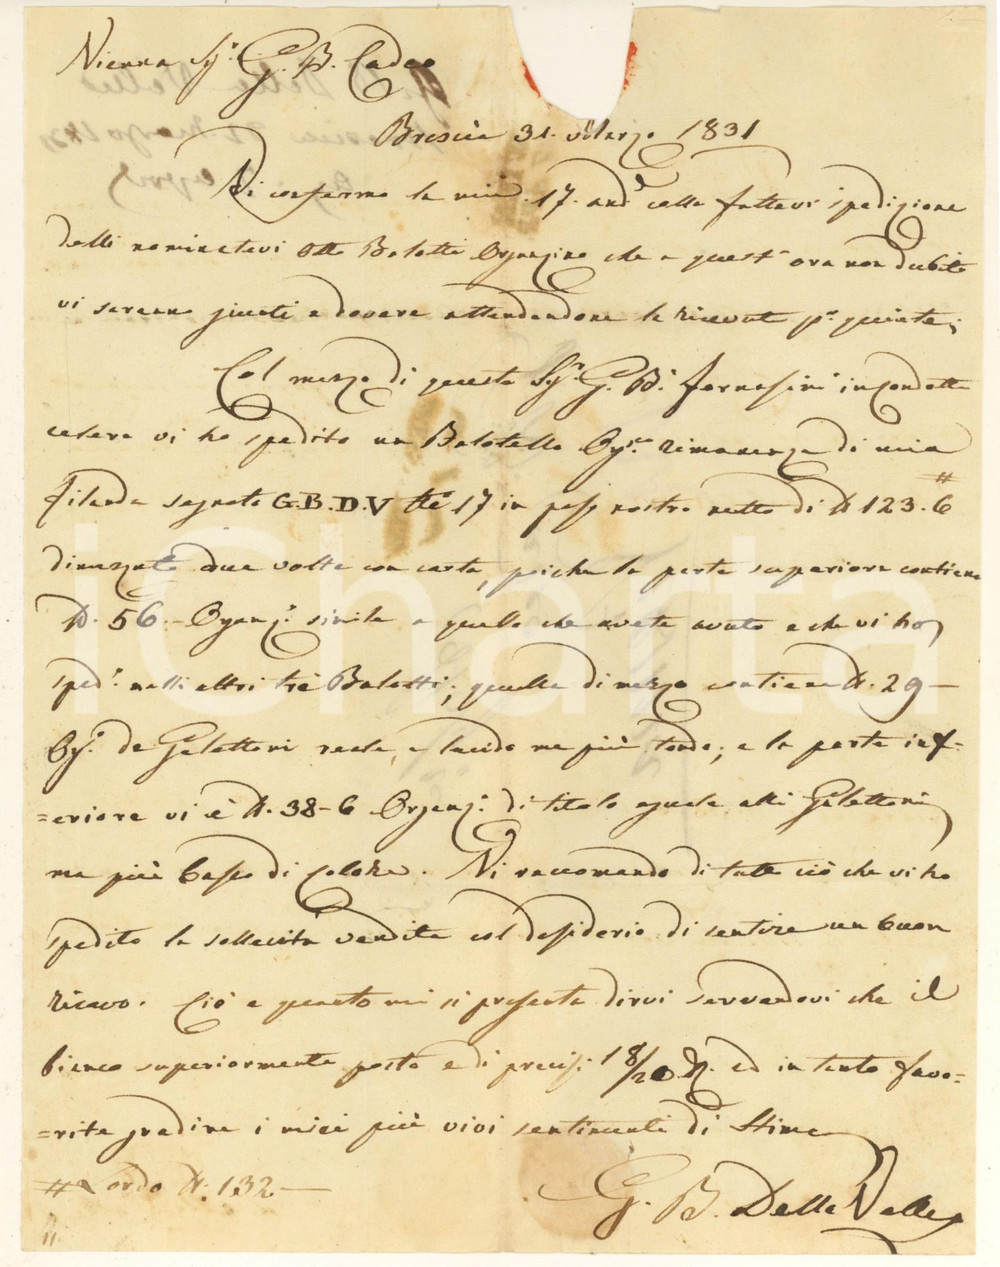 Vienna Sig.r G. B. Cadeo
Brescia 31. Marzo 1831
Vi confermo la mia 17. and.e colla fattavi spedizione
delli nominativi otto Balotti Organzino che a quest'ora non dubito
vi saranno giunti a dovere attendendone la ricevuta p.r quiete;
Col mezzo di questo Sig.r G. B. Fornasini in condotta
celere vi ho spedito un Balotello Org.no rimanenza di mia
Filanda segnato G.B.D.V N.o 17 in peso nostro netto di lb 123.6 #
dimezzato due volte con carta, poiche la parte superiore contiene
lb. 56.- Organz.o simile a quello che avete avuto e che vi ho
sped.o nelli altri tre Balotti; quella di mezzo contiene lb. 29 -
Org.o de Galettoni reale, e lucido ma più tondo; e la parte inf-
=eriore vi è lb. 38-6 Organz.o di titolo eguale alli Galettoni
ma più basso di colore. Vi raccomando di tutto ciò che vi ho
spedito la sollecita vendita col desiderio di sentire un buon
ricavo. Ciò e quanto mi si presenta dirvi servendovi che il
bianco superiormente posto e di precisi 18/20 d. ed in tanto favo-
=rite gradire i miei più vivi sentimenti di Stima
# Lordo lb. 132 -
G. B. Dalla Valle
iCharta